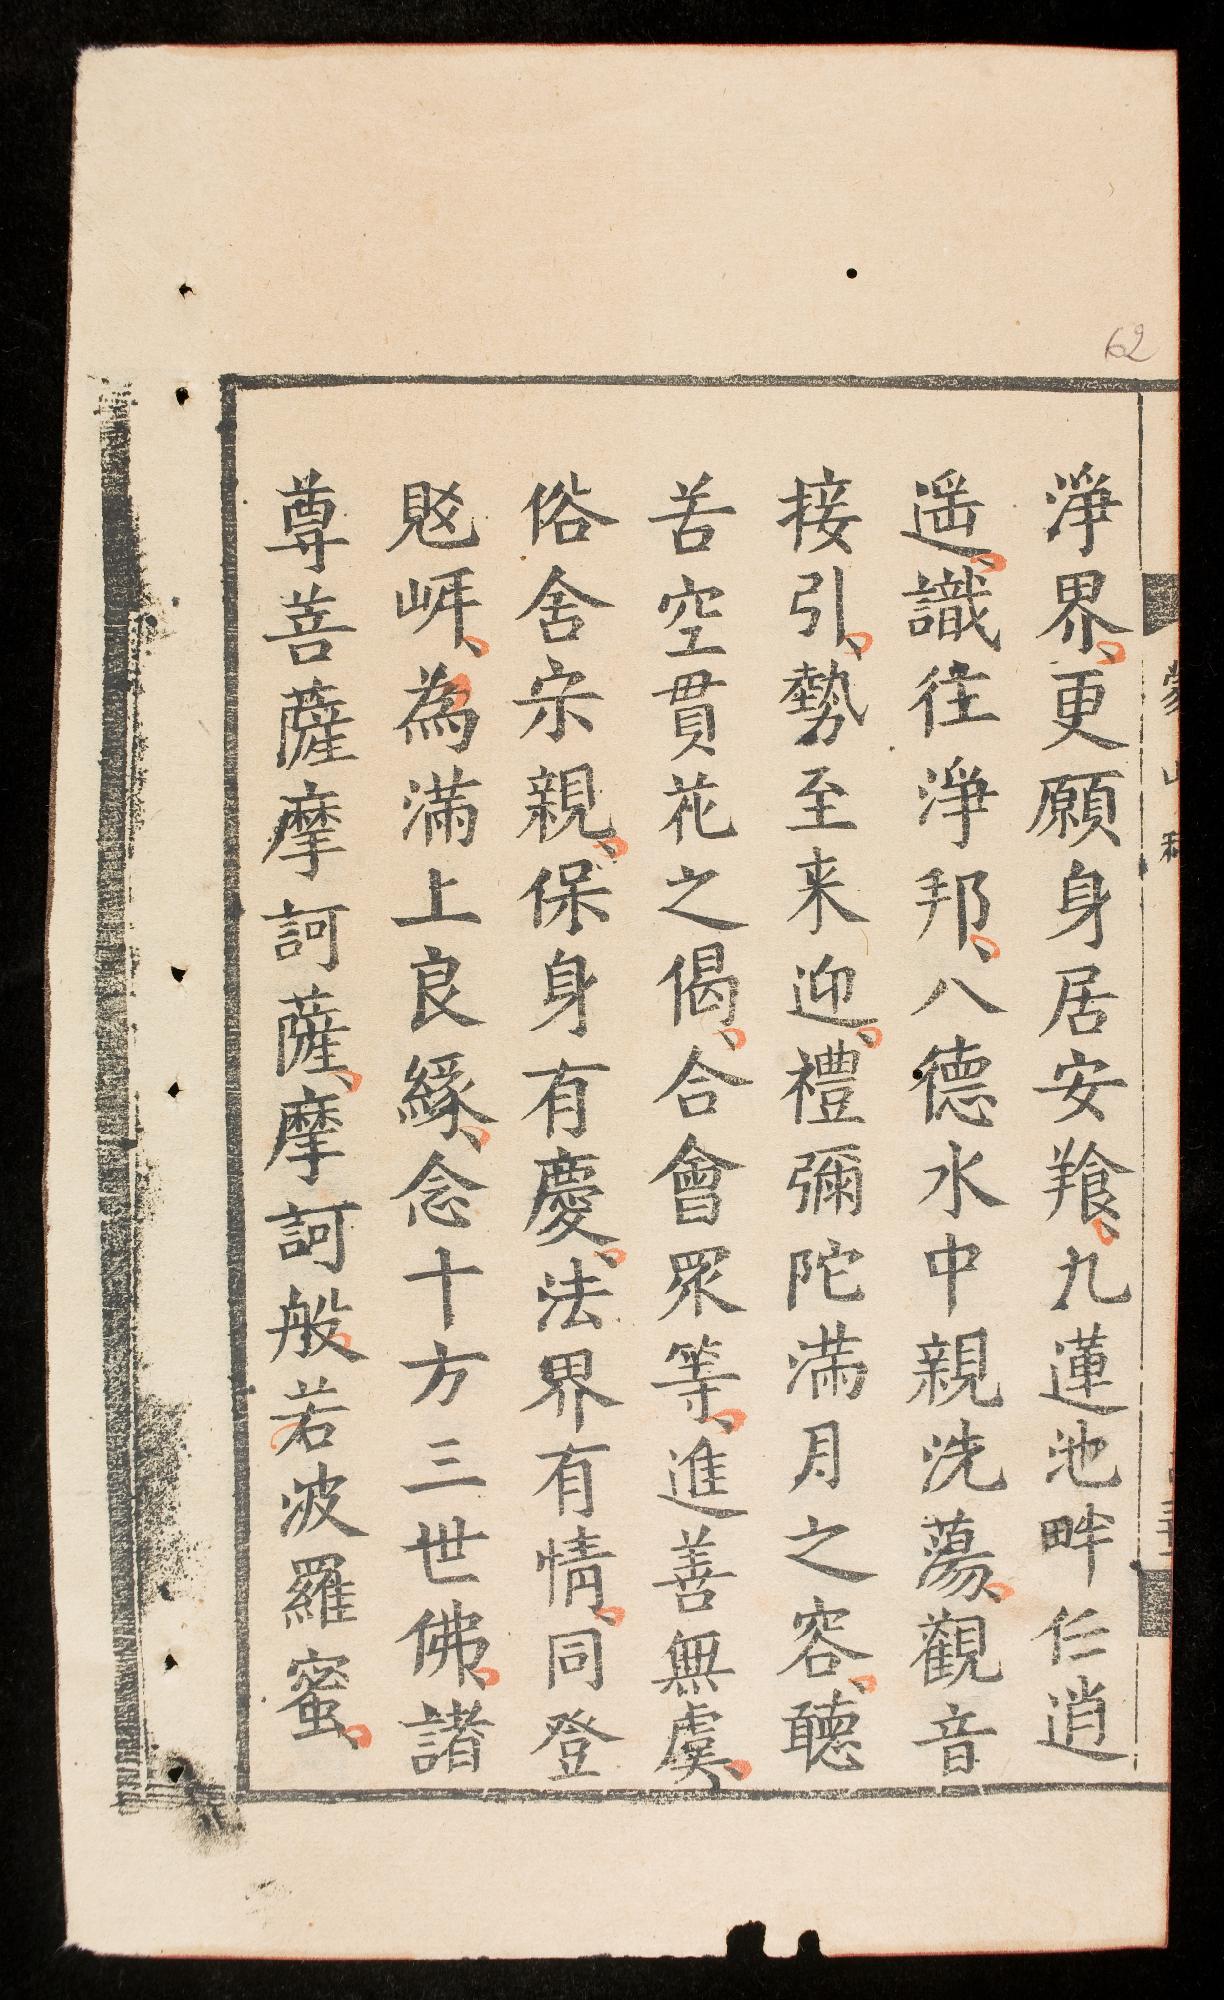 62
淨界更願身居安飱九蓮池畔仨逍
遥識往淨邦八德水中親洗蕩觀音
接引勢至来迎禮彌陀滿月之容聽
苦空貫花之偈合會眾等進善無虞
俗舍宗親保身有慶法界有情同登
𧵑𡶀為滿上良緣念十方三世佛諸
尊菩薩摩訶薩摩訶般若波羅蜜
蒙山科